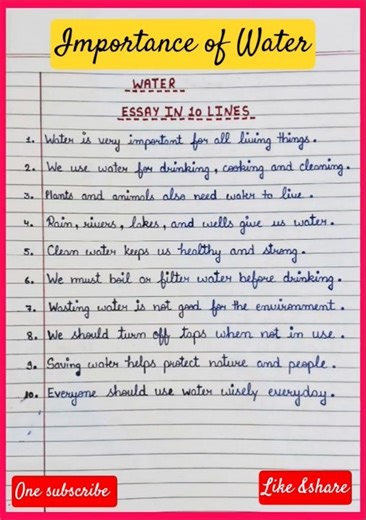 Importance of Water
WATER
ESSAY IN 10 LINES
1. Water is very important for all living things.
2. We use water for drinking, cooking and cleaning.
3. Plants and animals also need water to live.
4. Rain, rivers, lakes, and wells give us water.
5. Clean water keeps us healthy and strong.
6. We must boil or filter water before drinking.
7. Wasting water is not good for the environment.
8. We should turn off taps when not in use.
9. Saving water helps protect nature and people.
10. Everyone should use water wisely everyday.
One subscribe
Like &share